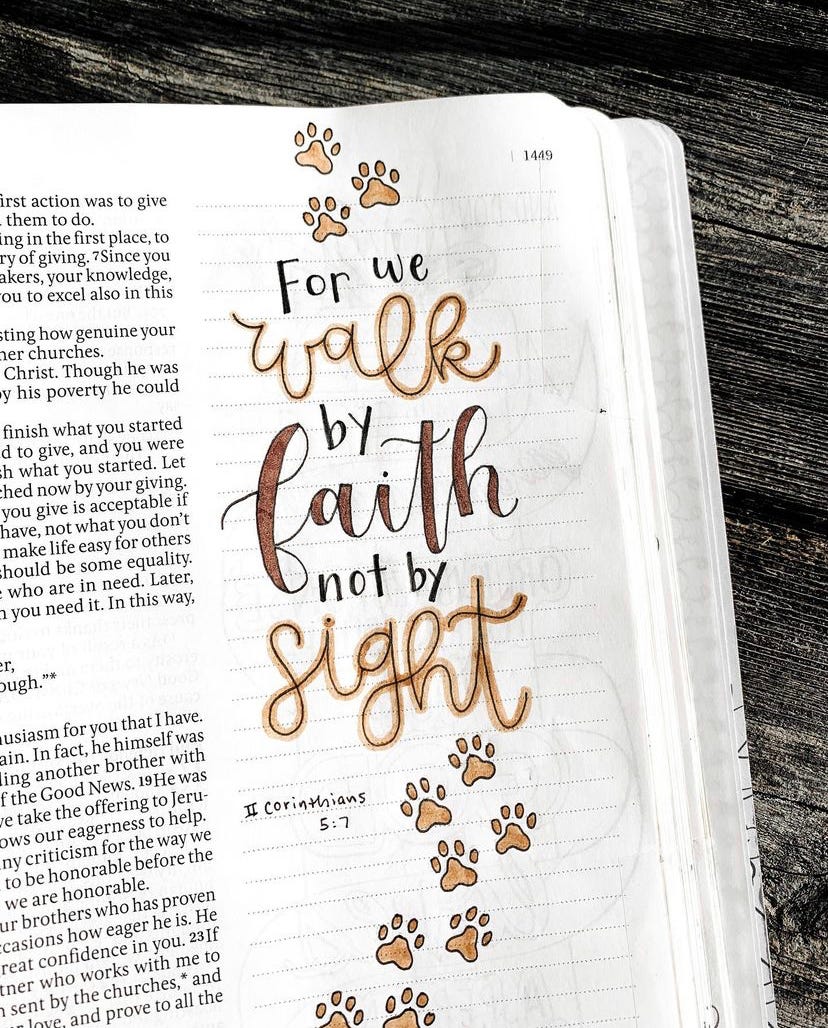 1449
irst action was to give
them to do.
ing in the first place, to
ry of giving. 7Since you
akers, your knowledge,
ou to excel also in this
sting how genuine your
her churches.
Christ. Though he was
y his poverty he could
finish what you started
d to give, and you were
sh what you started. Let
ched now by your giving.
you give is acceptable if
have, not what you don't
make life easy for others
should be some equality.
who are in need. Later,
you need it. In this way,
er,
ough."*
husiasm for you that I have.
ain. In fact, he himself was
ding another brother with
f the Good News. 19He was
ve take the offering to Jeru-
ows our eagerness to help.
ny criticism for the way we
to be honorable before the
we are honorable.
ur brothers who has proven
ccasions how eager he is. He
reat confidence in you. 23If
tner who works with me to
sent by the churches,* and
r love, and prove to all the
For we
walk
by
faith
not by
sight
II corinthians
5:7